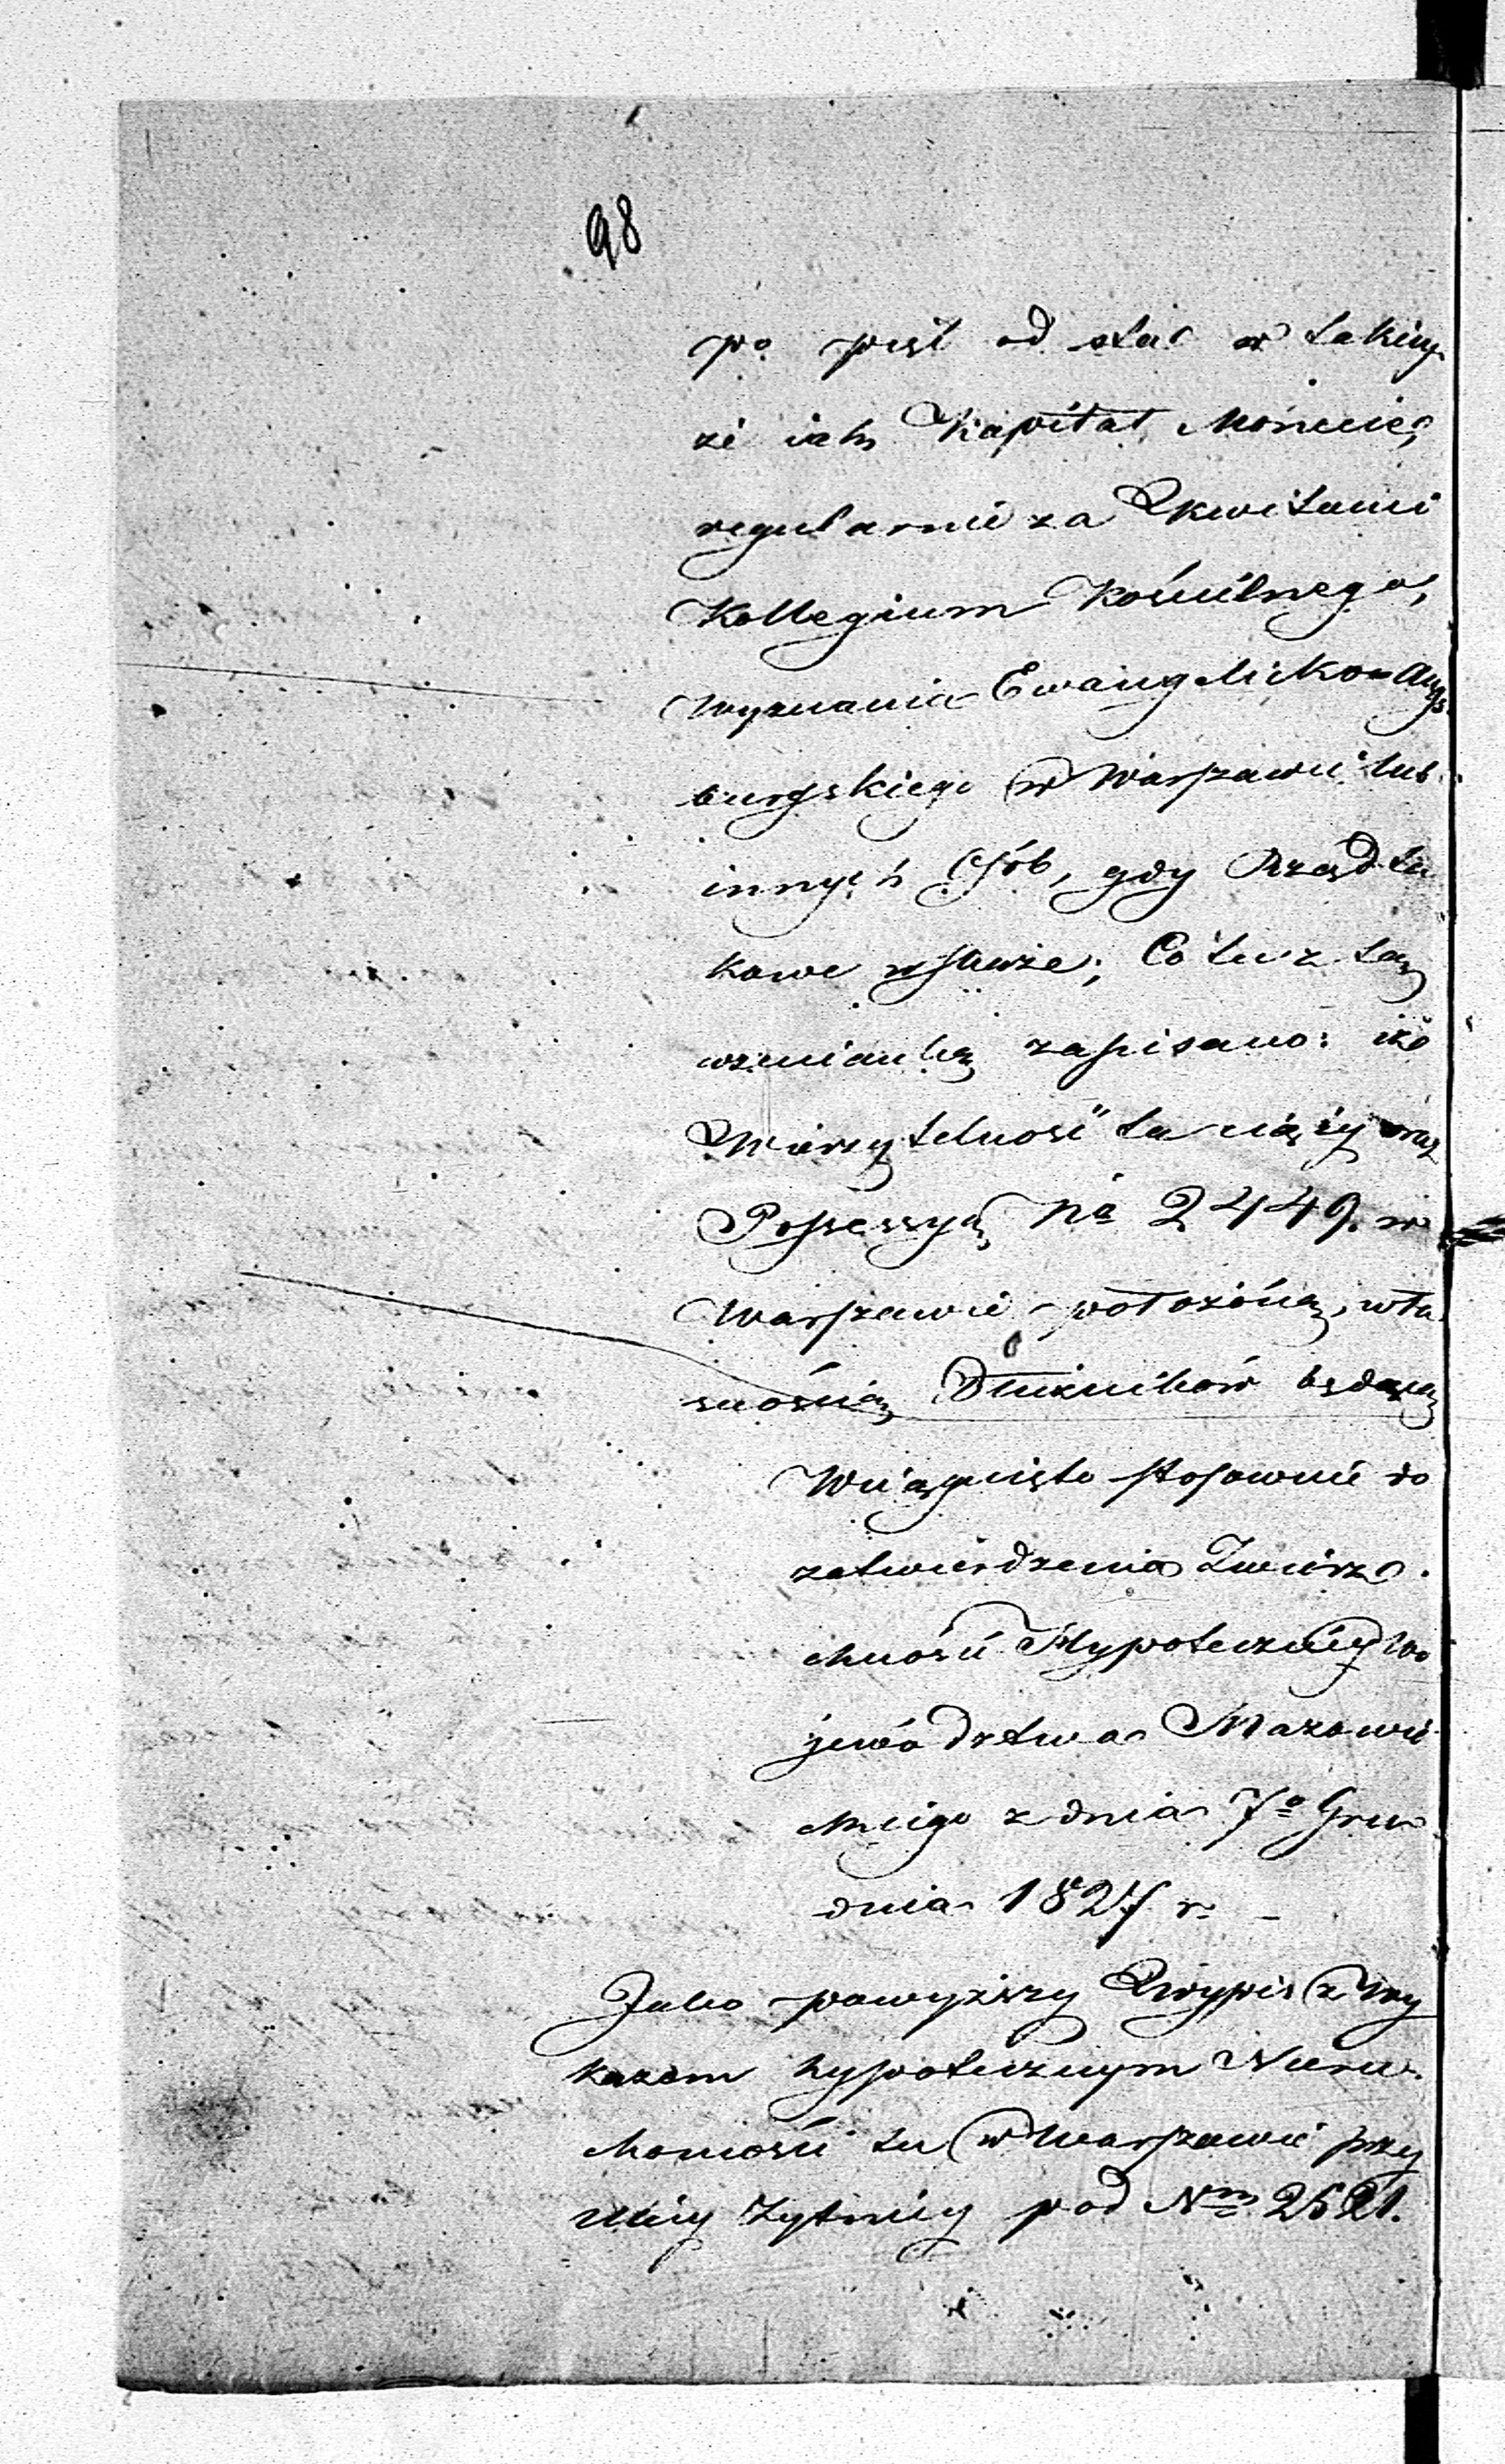 98
po pięć od sta w takiey
że iak Kapitał Monecie,
regularnie za kwitami
Kollegium Kościelnego,
wyznania Ewangelicko Augs
burgskiego w Warszawie lub
innych osób, gdy Rząd ta
kowe wskaże; Co tu z tą
wzmianką zapisano: iże
Wierzytelność ta ciąży oraz
Possessyą No 2449. w
Warszawie położoną, wła
snością Dłużników będącą
Wciągnięto stosownie do
zatwierdzenia Zwierz
chności Hypoteczney Wo
jewództwa Mazowie
ckiego z dnia 7o Gru
dnia 1827 r. –
Jako powyższy Wypis z Wy
kazem hypotecznym Nieru
chomości tu w Warszawie przy
ulicy Żytniey pod Nrm 2521.